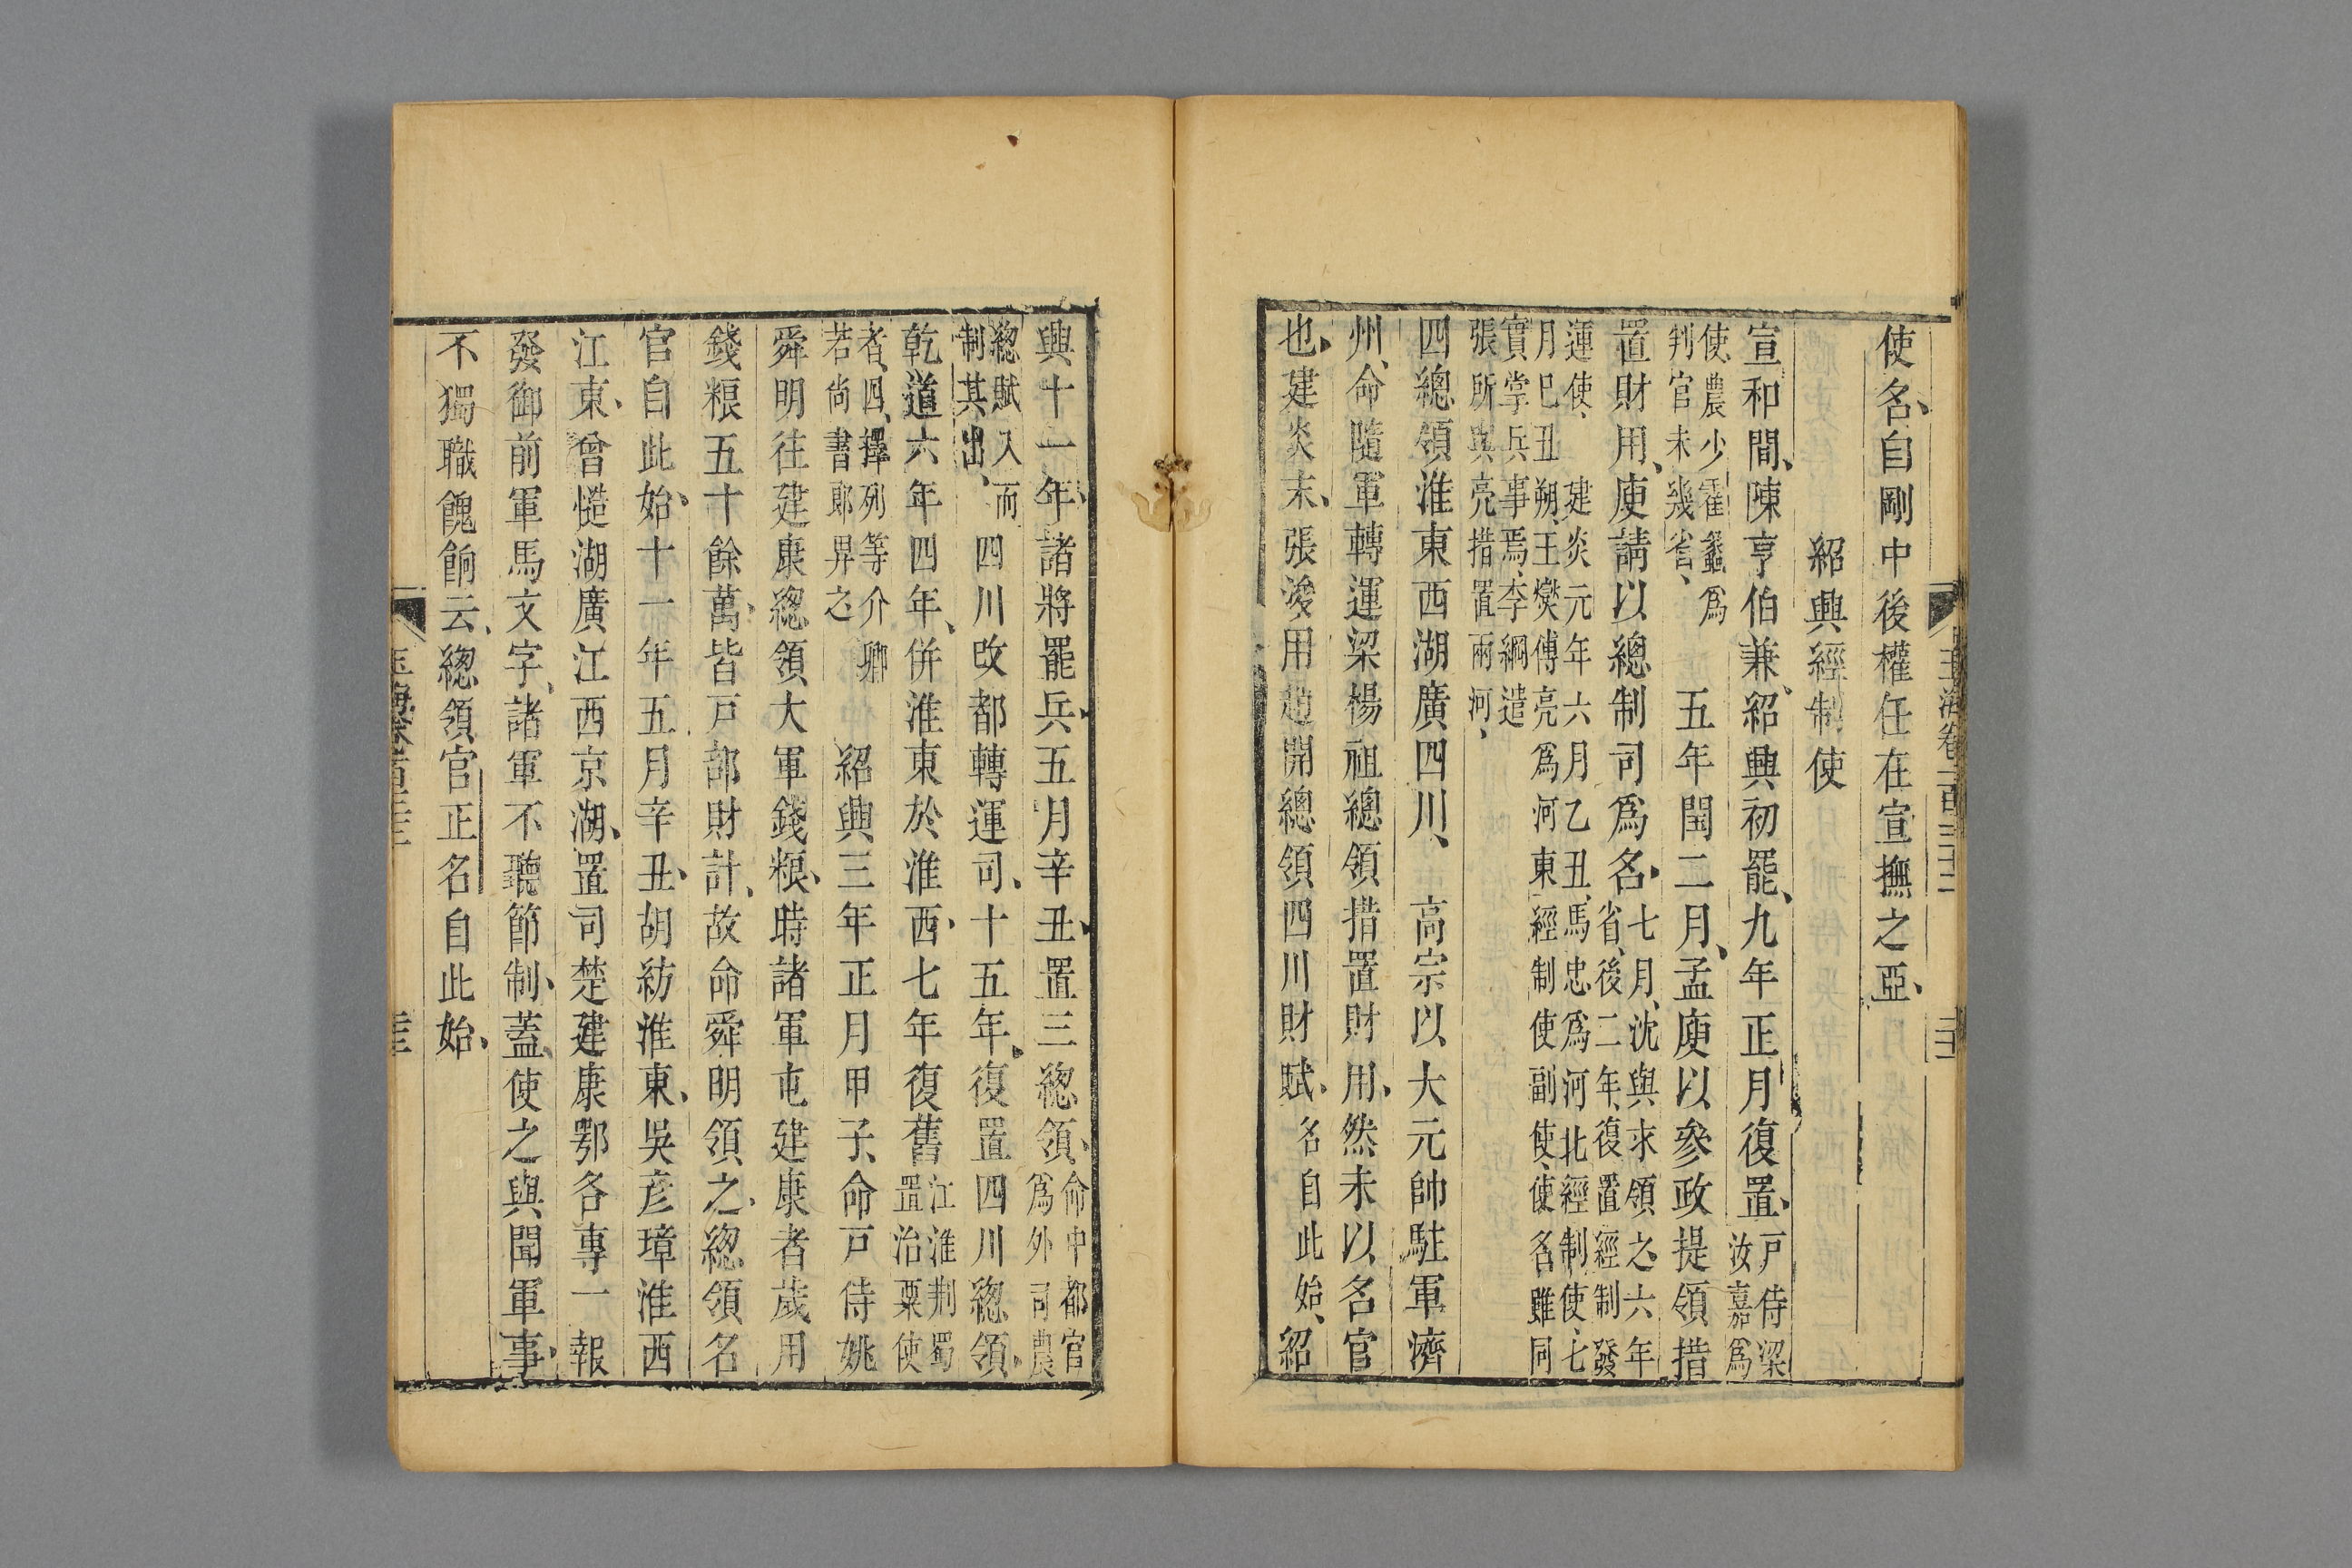 使名自剛中後權任在宣撫之亞
紹興經制使
宣和間陳亨伯兼紹興初罷九年正月復置戸侍梁汝嘉爲
使農少霍蠡爲判官未幾省五年閏二月孟庾以參政提領措
置財用庾請以總制司爲名七月沈與求領之六年省後二年復置經制發
運使建炎元年六月乙丑馬忠爲河北經制使七月巳丑朔王𤫉傅亮爲河東經制使副使使名雖同
實掌兵事焉李綱遣張所與亮措置兩河
四總領淮東西湖廣四川高宗以大元帥駐軍濟
州命隨軍轉運梁楊祖總領措置財用然未以名官
也建炎末張浚用趙開總領四川財賦名自此始紹
興十一年諸將罷兵五月辛丑置三總領命中都官爲外司農
總賦入而制其出四川改都轉運司十五年復置四川總領
乾道六年四年併淮東於淮西七年復舊江淮荆蜀置治粟使
者四擇列等介卿若尚書郎畀之紹興三年正月甲子命戸侍姚
舜明往建康總領大軍錢糧時諸軍屯建康者歲用
錢糧五十餘萬皆戸部財計故命舜明領之總領名
官自此始十一年五月辛丑胡紡淮東吳彦璋淮西
江東曾慥湖廣江西京湖置司楚建康鄂各專一報
發御前軍馬文字諸軍不聽節制蓋使之與聞軍事
不獨職餽餉云總領官正名自此始